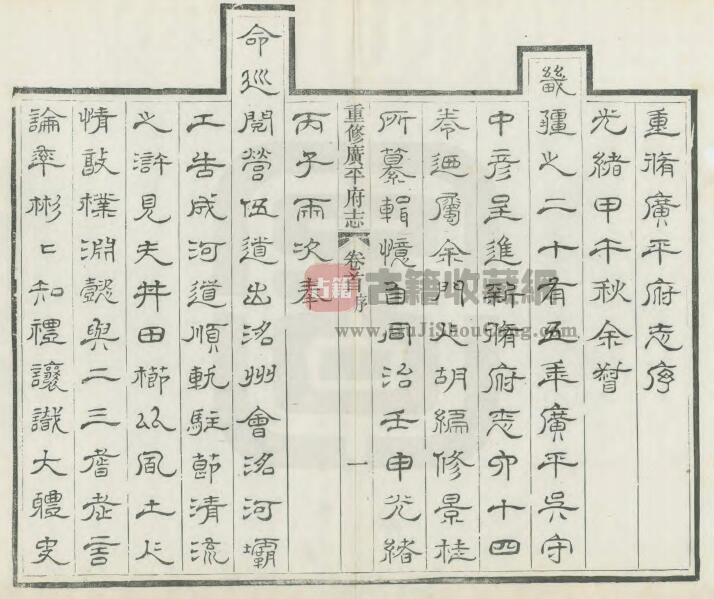 重脩廣平府志序
光緒甲午秋余督
畿疆之二十有五年廣平吳守
中彦呈進新脩府志卯十四
卷迺屬余門人胡編修景桂
所纂輯憶自同治壬申光緒
重修廣平府志 卷首序 一
丙子兩次奉
命巡閱營伍道出洺州會洺河壩
工告成河道順軌駐節清流
之滸見夫井田櫛比風土人
情敦樸淵懿與二三耆老言
論率彬彬知禮讓識大體史
古籍 古籍收藏網
www.GuJiShouCang.com